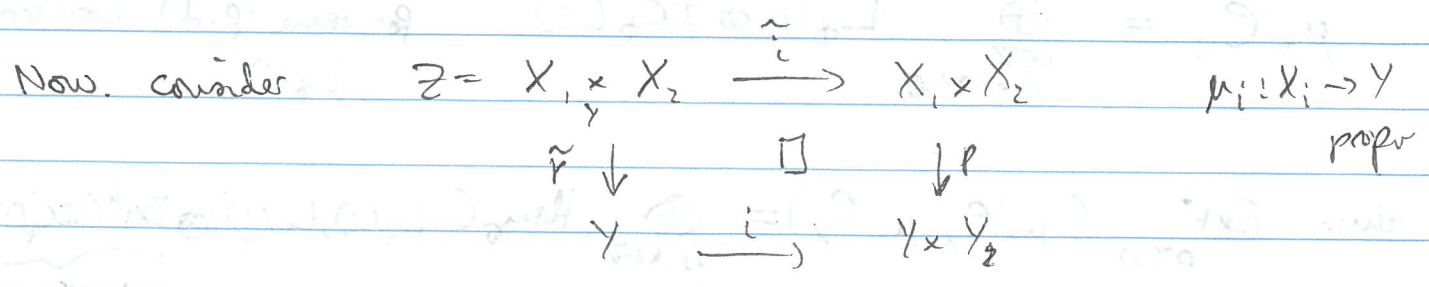 ĩ
Now. consider Z = X₁ × X₂ → X₁ × X₂ μᵢ : Xᵢ → Y
Y proper
p̃ ↓ □ ↓ p
i
Y → Y × Y₂